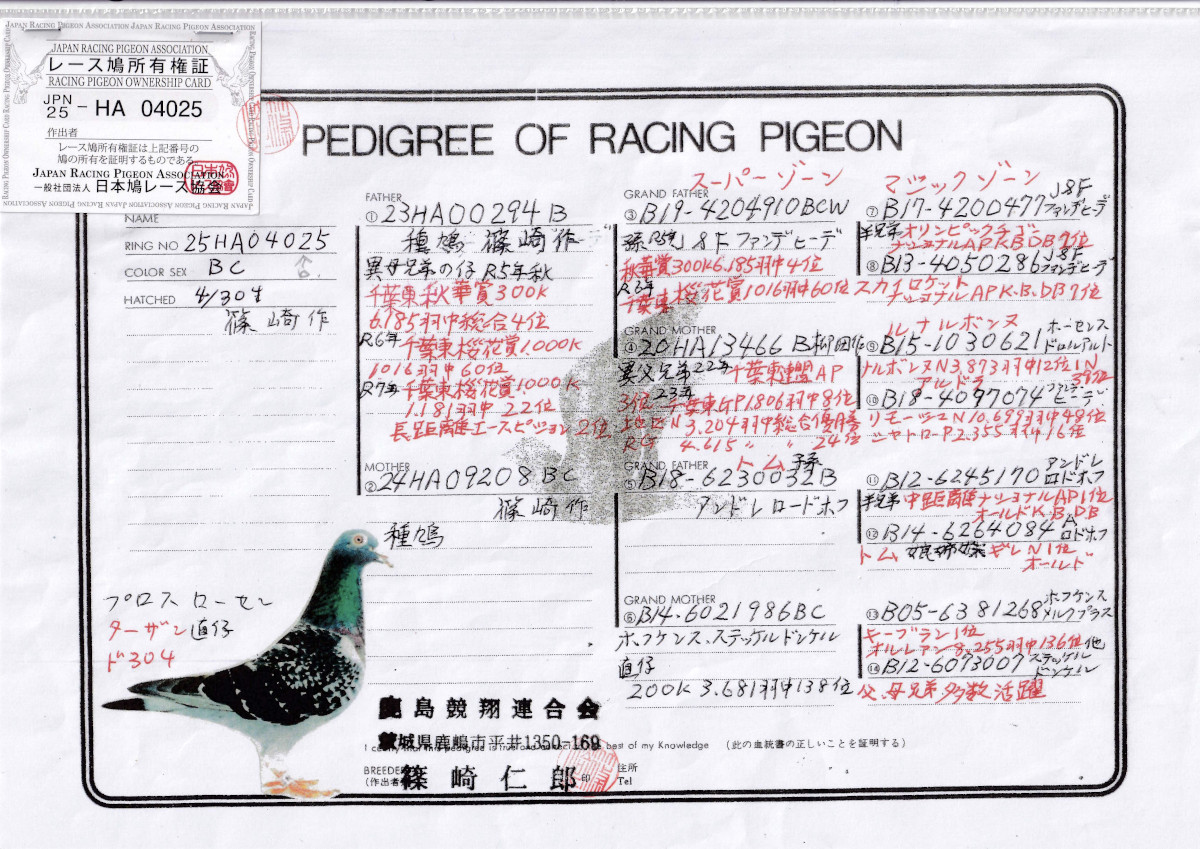 JAPAN RACING PIGEON ASSOCIATION JAPAN RACING PIGEON ASSOCIATION
JAPAN RACING PIGEON ASSOCIATION
レース鳩所有権証
RACING PIGEON OWNERSHIP CARD
JPN 25 - HA 04025
作出者
レース鳩所有権証は上記番号の
鳩の所有を証明するものである
JAPAN RACING PIGEON ASSOCIATION
一般社団法人 日本鳩レース協会
PEDIGREE OF RACING PIGEON
NAME
RING NO 25HA04025
COLOR SEX BC
HATCHED 4/30生
篠崎作
FATHER
① 23HA00294B
種鳩 篠崎作
異母兄弟の仔 R5年秋
千葉東秋華賞300K
6.185羽中総合4位
R6年千葉東桜花賞1.000K
1016羽中60位
R7年千葉東桜花賞1000K
1.181羽中22位
長距離エースピジョン2位
MOTHER
② 24HA09208BC
篠崎作
種鳩
スーパーゾーン
GRAND FATHER
③ B19-4204910BCW
孫 R5年 J8Fファンデヒーデ
秋華賞300K6.185羽中4位
R6年
千葉東桜花賞1016羽中60位
GRAND MOTHER
④ 20HA13466B柳田作
異父兄弟22年千葉東連盟AP
3位 23年千葉東GP1.806羽中8位
N3.204羽中総合優勝
RG 4.615 〃 〃 24位
トム
GRAND FATHER
⑤ B18-6230032B
アンドレロードホフ
GRAND MOTHER
⑥ B14-6021986BC
ホフケンス、ステッケルドンケル
直仔
200K 3.681羽中138位
マジックゾーン
⑦ B17-4200477 J8Fファンデヒーデ
半兄弟オリンピックチゴー
ナショナルAPK.B.DB9位
⑧ B13-4050286 J8Fファンデヒーデ
スカイロケット
ナショナルAPK.B.DB9位
ルナルボンヌ
⑨ B15-1030621 ホーセンス ドロルアルト
ナルボンヌN3,873羽中12位
アルドラ
⑩ B18-4097074 ファンデヒーデ
リモージュN10.699羽中48位
シャトローP2.355羽中16位
⑪ B12-6245170 アンドレロドホフ
半兄弟 中距離ナショナルAP1位
オールドK.B.DB
⑫ B14-6264084 Aロドホフ
トム
ギレN1位
オールド
⑬ B05-6381268 ホフケンス メルクプラス
キーブラン1位
オルレアン8,255羽中136位他
⑭ B12-6073007 ステッケルドンケル
父、母兄弟多数活躍
プロスローセン
ターザン直仔
ド304
鹿島競翔連合会
茨城県鹿嶋市平井1350-169
best of my Knowledge (此の血統書の正しいことを証明する)
BREEDER
(作出者) 篠崎仁郎 印
住所
Tel